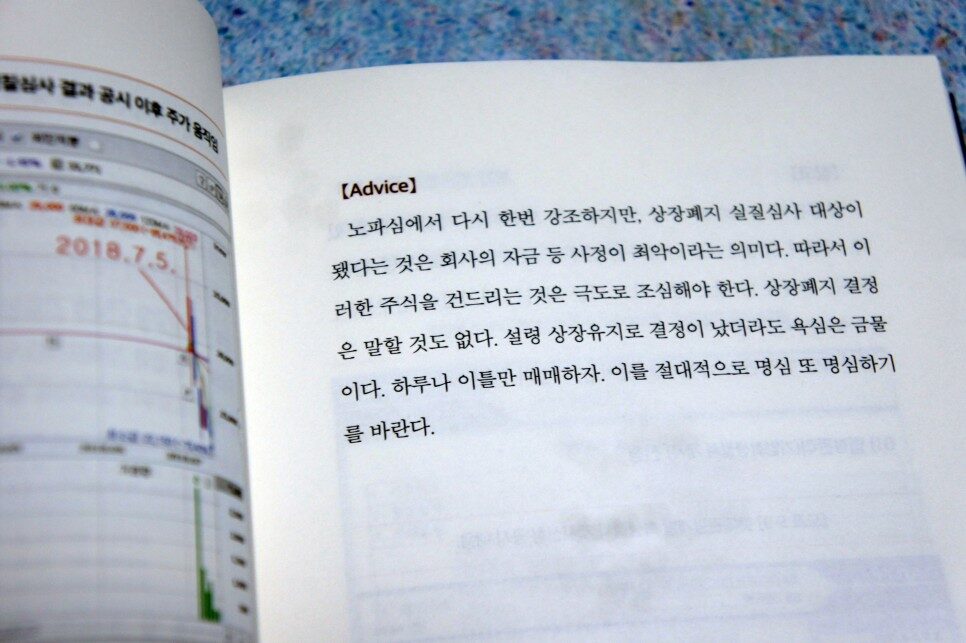 질심사 결과 공시 이후 주가 움직임
2018.7.5.
【Advice】
노파심에서 다시 한번 강조하지만, 상장폐지 실질심사 대상이
됐다는 것은 회사의 자금 등 사정이 최악이라는 의미다. 따라서 이
러한 주식을 건드리는 것은 극도로 조심해야 한다. 상장폐지 결정
은 말할 것도 없다. 설령 상장유지로 결정이 났더라도 욕심은 금물
이다. 하루나 이틀만 매매하자. 이를 절대적으로 명심 또 명심하기
를 바란다.